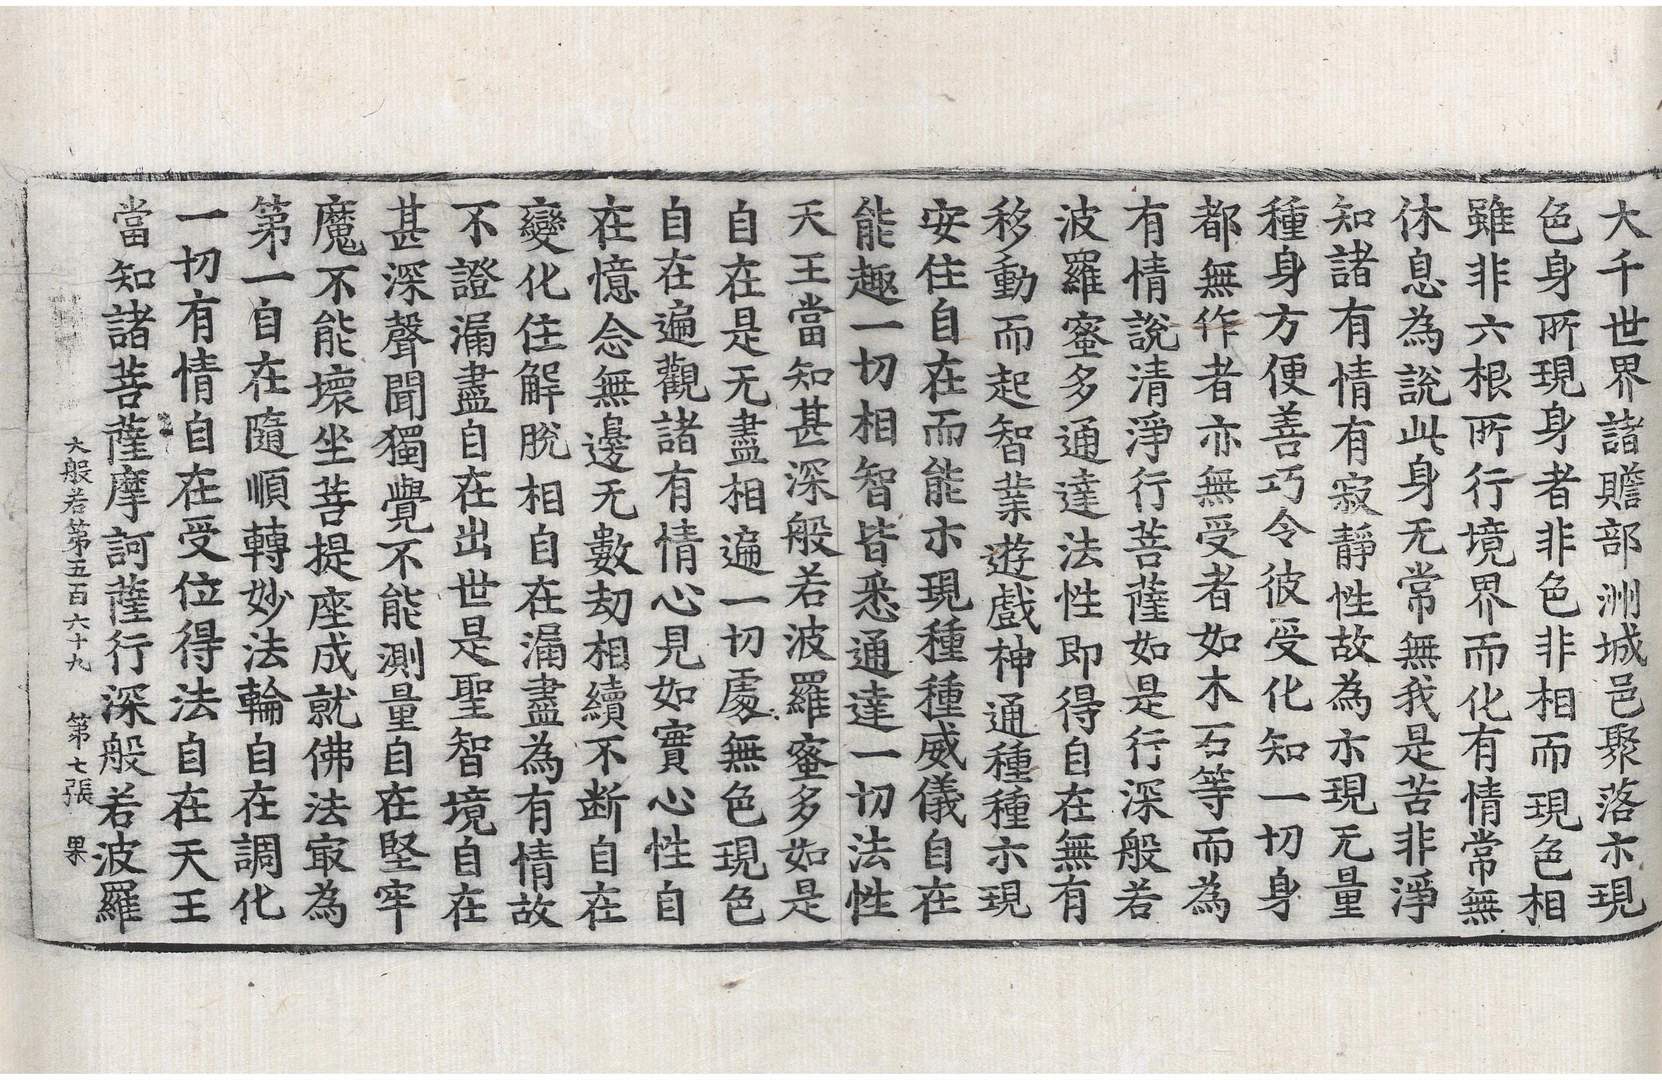 大千世界諸贍部洲城邑聚落示現
色身所現身者非色非相而現色相
雖非六根所行境界而化有情常無
休息為說此身无常無我是苦非淨
知諸有情有寂靜性故為示現无量
種身方便善巧令彼受化知一切身
都無作者亦無受者如木石等而為
有情說清淨行菩薩如是行深般若
波羅蜜多通達法性即得自在無有
移動而起智業遊戲神通種種示現
安住自在而能示現種種威儀自在
能趣一切相智皆悉通達一切法性
天王當知甚深般若波羅蜜多如是
自在是无盡相遍一切處無色現色
自在遍觀諸有情心見如實心性自
在憶念無邊无數劫相續不断自在
變化住解脫相自在漏盡為有情故
不證漏盡自在出世是聖智境自在
甚深聲聞獨覺不能測量自在堅牢
魔不能壞坐菩提座成就佛法㝡為
第一自在隨順轉妙法輪自在調化
一切有情自在受位得法自在天王
當知諸菩薩摩訶薩行深般若波羅
大般若第五百六十九　第七張　果